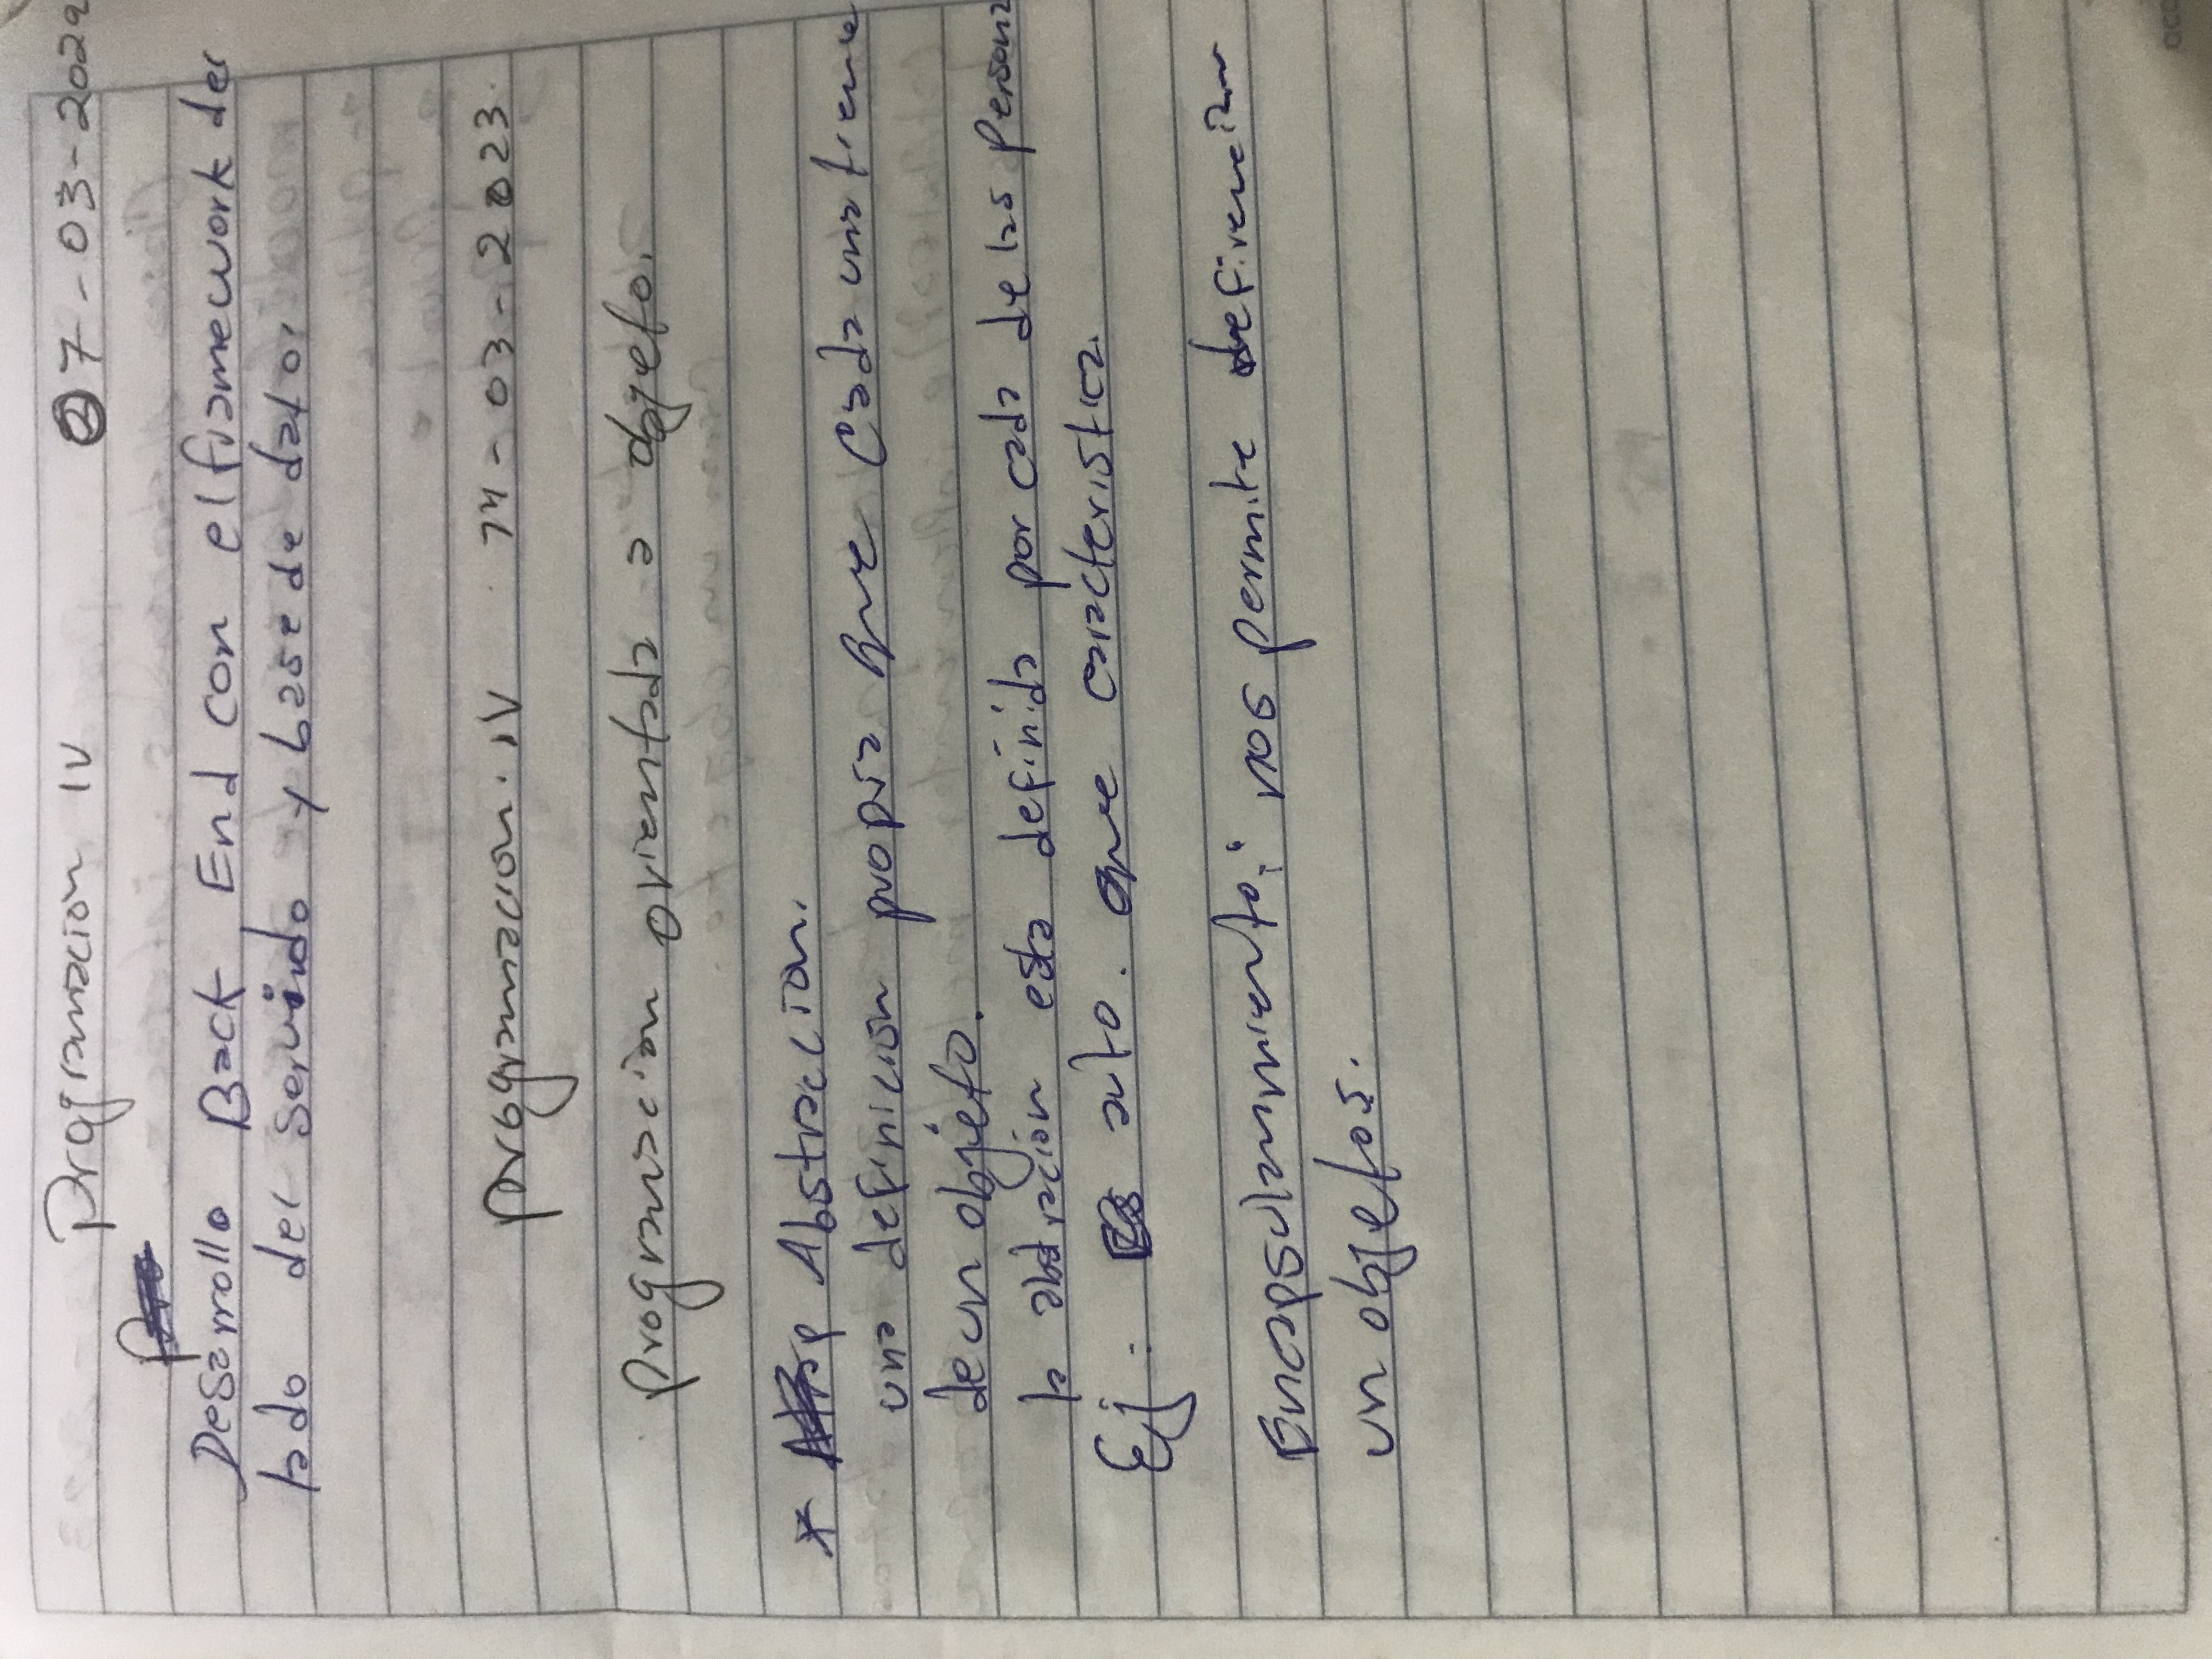 Programacion IV 07-03-2022
Desarrollo Back End con el framework del
lado del servido y base de dato.
programacion. IV 14-03-2023.
programacion orientada a objeto.
* Abstraccion.
una definicion propia que cada una tiene
de un objeto.
la abstración esta definida por cada de las persona
Ej: auto. que caracteristica.
Encapsulamiento: nos permite
un objetos.